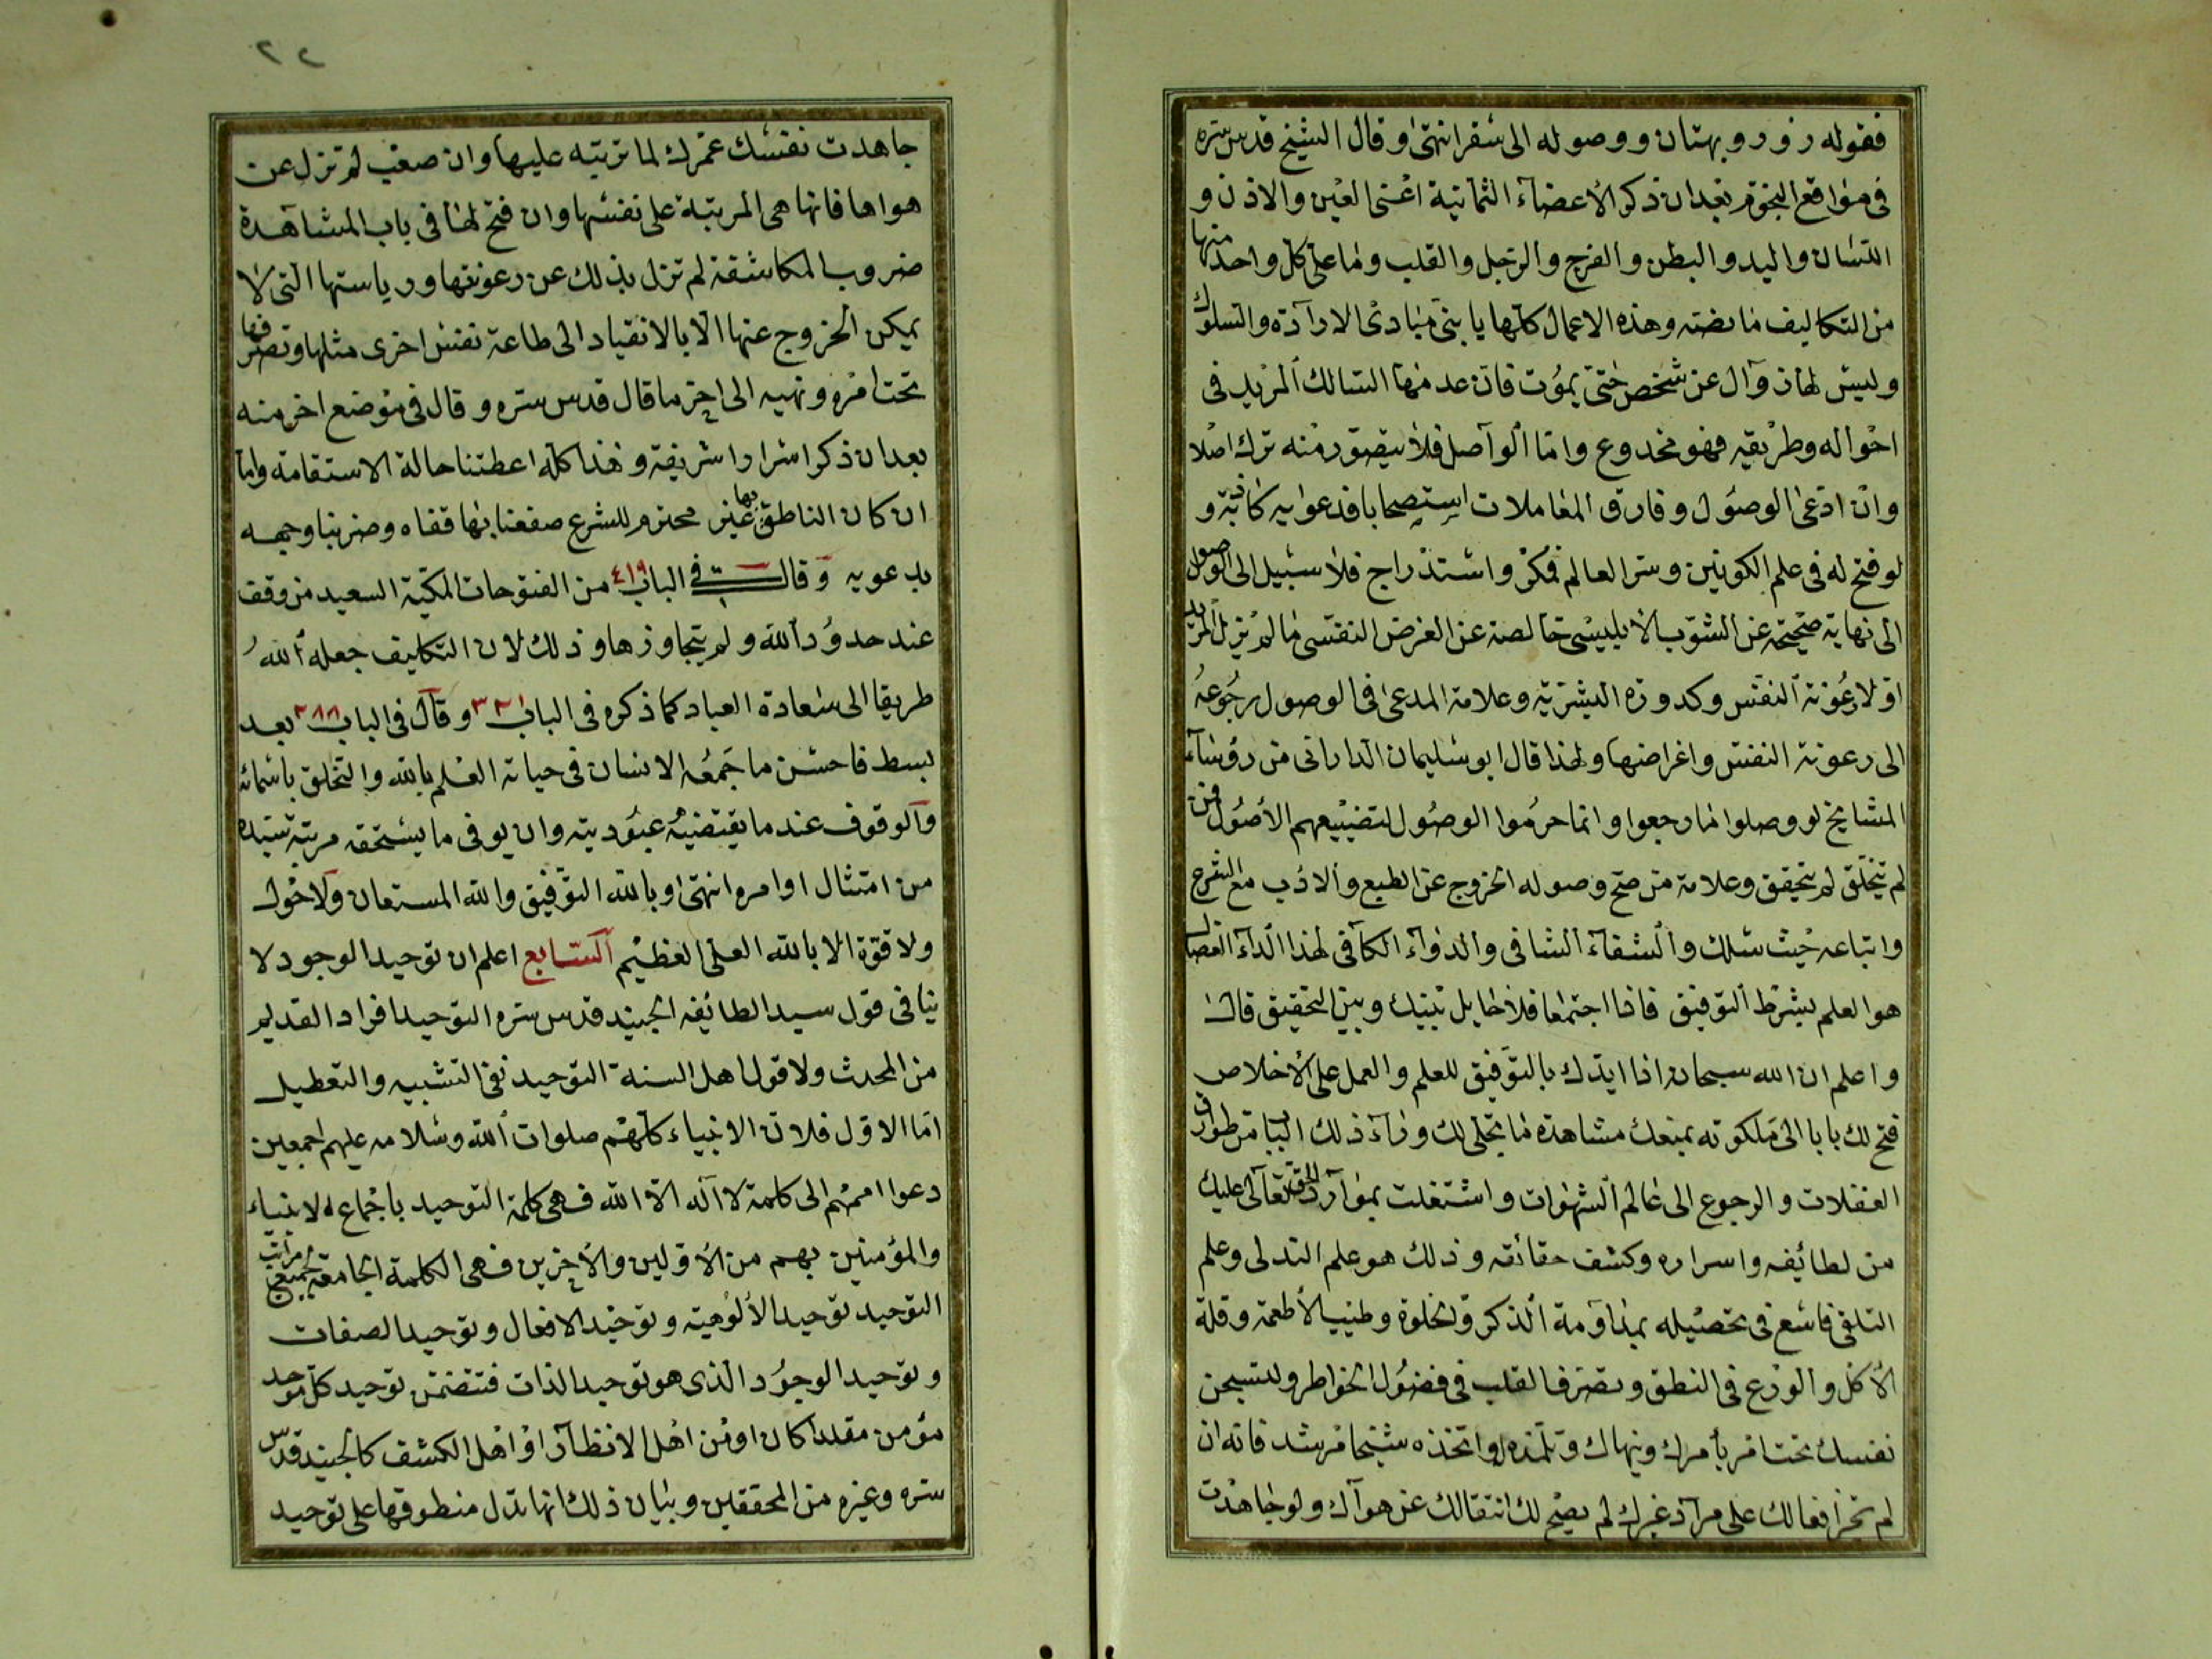 فقوله زور وبهتان ووصوله الى سقر انتهى وقال الشيخ قدس سره
فى مواقع النجوم بعد ان ذكر الأعضاء الثمانية اعنى العين والاذن و
اللسان واليد والبطن والفرج والرجل والقلب وما على كل واحد منها
من التكاليف ما نصته وهذه الاعمال كلها يا بنى مبادى الارادة والسلوك
وليس لها زوال عن شخص حتى يموت فان عدمها السالك المريد فى
احواله وطريقه فهو مخدوع واما الواصل فلا يتصور منه ترك اصلا
وان ادعى الوصول وفارق المعاملات استصحابا فدعوايه كاذبة و
لو فتح له فى علم الكونين وسر العالم فمكر واستدراج فلا سبيل الى الوصول
الى نهاية صحيحة عن الشوب الابليسى خالصة عن الغرض النفسى ما لم يزل المريد
اولا رعونة النفس وكدورة البشرية وعلامة المدعى فى الوصول رجوعه
الى رعونة النفس واغراضها ولهذا قال ابو سليمان الدارانى من رؤساء
المشايخ لو وصلوا ما رجعوا وانما حرموا الوصول لتضييعهم الأصول فمن
لم يتخلق لم يتحقق وعلامة من صح وصوله الخروج عن الطبع والادب مع الشرع
واتباعه حيث سلك والشفاء الشافى والدواء الكافى لهذا الداء العضال
هو العلم بشرط التوفيق فاذا اجتمعا فلا حايل بينك وبين التحقيق قال
واعلم ان الله سبحانه اذا ايدك بالتوفيق للعلم والعمل على الأخلاص
فتح لك بابا الى ملكوته يمنعك مشاهدة ما تجلى لك وراء ذلك الباب من طوارق
الغفلات والرجوع الى عالم الشهوات واشتغلت بموارد الحق تعالى عليك
من لطائفه واسراره وكشف حقائقه وذلك هو علم التدلى وعلم
التلقى فاسع فى تحصيله بمداومة الذكر والخلوة وطيب الأطعمة وقلة
الأكل والورع فى النطق وتصرف القلب فى فضول الخواطر ولتسجن
نفسك تحت امر يأمرك وينهاك وتلمذه واتخذه شيخا مرشد فانه ان
لم تجر افعالك على مراد غيرك لم يصح لك انتقالك عن هواك ولو جاهدت
٢٢
جاهدت نفسك عمرك لما تربته عليها وان صعب لم تزل عن
هواها فانها هى المرتبة على نفسها وان فتح لها فى باب المشاهدة
ضروب المكاشفة لم تزل بذلك عن رعونتها ورياستها التى لا
يمكن الخروج عنها الا بالانقياد الى طاعة نفس اخرى مثلها وتصرفها
تحت امره ونهيه الى اخر ما قال قدس سره وقال فى موضع اخر منه
بعد ان ذكر اسرارا شريفة وهذا كله اعطتنا حالة الاستقامة واما
ان كان الناطق بها غير محترم للشرع صفعنا بها قفاه وضربنا وجهه
بدعويه وقال فى الباب ٤١٩ من الفتوحات المكية السعيد من وقف
عند حدود الله ولم يتجاوزها وذلك لان التكاليف جعله الله
طريقا الى سعادة العباد كما ذكره فى الباب وقال فى الباب ٢٨٨ بعد
بسط فاحسن ما جمعه الانسان فى حياته العلم بالله والتخلق باسمائه
والوقوف عند ما يقتضيه عبوديته وان يوفى ما يستحقه مرتبة سيده
من امتثال اوامره انتهى وبالله التوفيق والله المستعان ولا حول
ولا قوة الا بالله العلى العظيم السابع اعلم ان توحيد الوجود لا
ينافى قول سيد الطائفه الجنيد قدس سره التوحيد افراد القديم
من المحدث ولا قول اهل السنه التوحيد نفى التشبيه والتعطيل
اما الاول فلان الانبياء كلهم صلوات الله وسلامه عليهم اجمعين
دعوا اممهم الى كلمة لا اله الا الله فهى كلمة التوحيد باجماع الانبياء
والمؤمنين بهم من الأولين والأخرين فهى الكلمة الجامعة لجميع مراتب
التوحيد توحيد الألوهية وتوحيد الافعال وتوحيد الصفات
وتوحيد الوجود الذى هو توحيد الذات فتتضمن توحيد كل موحد
مؤمن مقلدا كان او من اهل الانظار او اهل الكشف كالجنيد قدس
سره وغيره من المحققين وبيان ذلك انها تدل منطوقها على توحيد